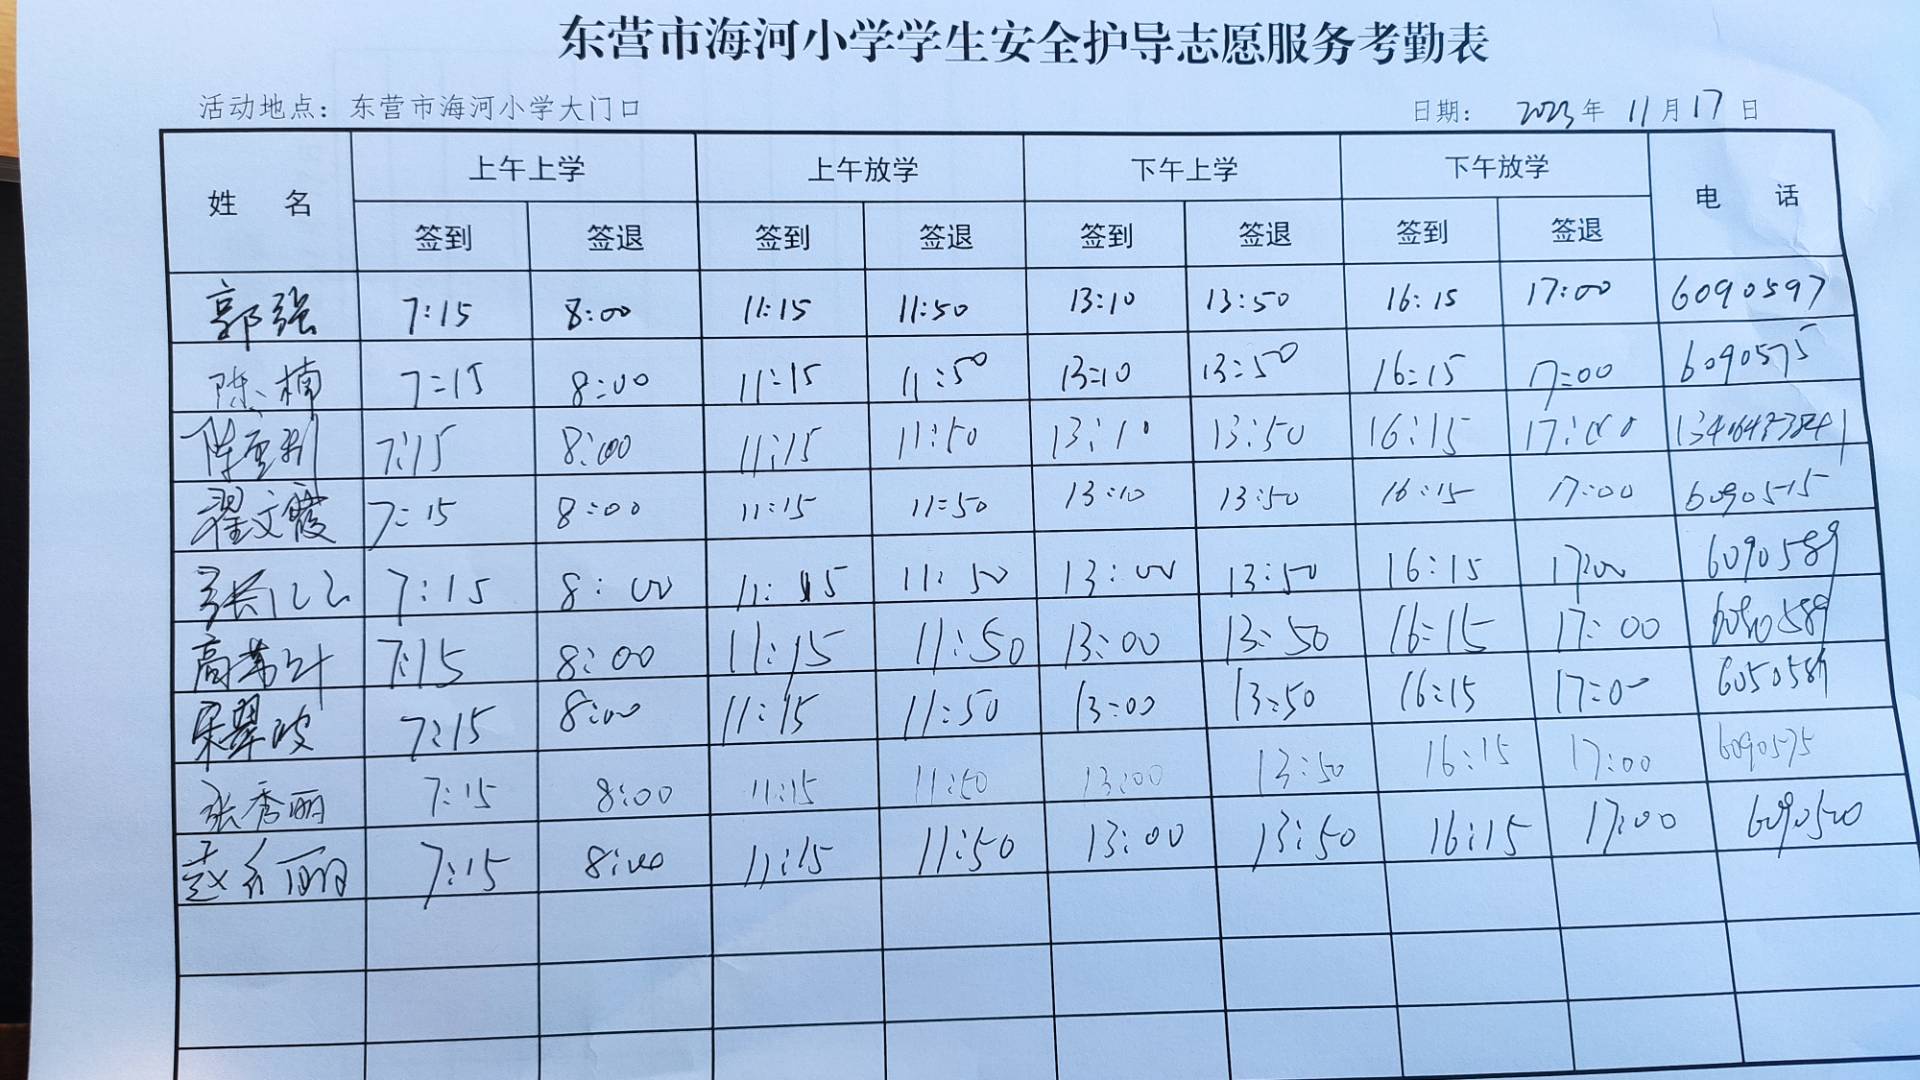 东营市海河小学学生安全护导志愿服务考勤表
活动地点：东营市海河小学大门口 日期： 2023年 11月17日
姓 名 上午上学 上午放学 下午上学 下午放学 电 话
签到 签退 签到 签退 签到 签退 签到 签退
郭强 7:15 8:00 11:15 11:50 13:10 13:50 16:15 17:00 6090597
陈楠 7:15 8:00 11:15 11:50 13:10 13:50 16:15 17:00 6090575
7:15 8:00 11:15 11:50 13:10 13:50 16:15 17:00
翟文霞 7:15 8:00 11:15 11:50 13:10 13:50 16:15 17:00 6090515
7:15 8:00 11:15 11:50 13:00 13:50 16:15 17:00 6090589
7:15 8:00 11:15 11:50 13:00 13:50 16:15 17:00 6090589
宋翠波 7:15 8:00 11:15 11:50 13:00 13:50 16:15 17:00
张秀丽 7:15 8:00 11:15 11:50 13:00 13:50 16:15 17:00 6090575
7:15 8:00 11:15 11:50 13:00 13:50 16:15 17:00